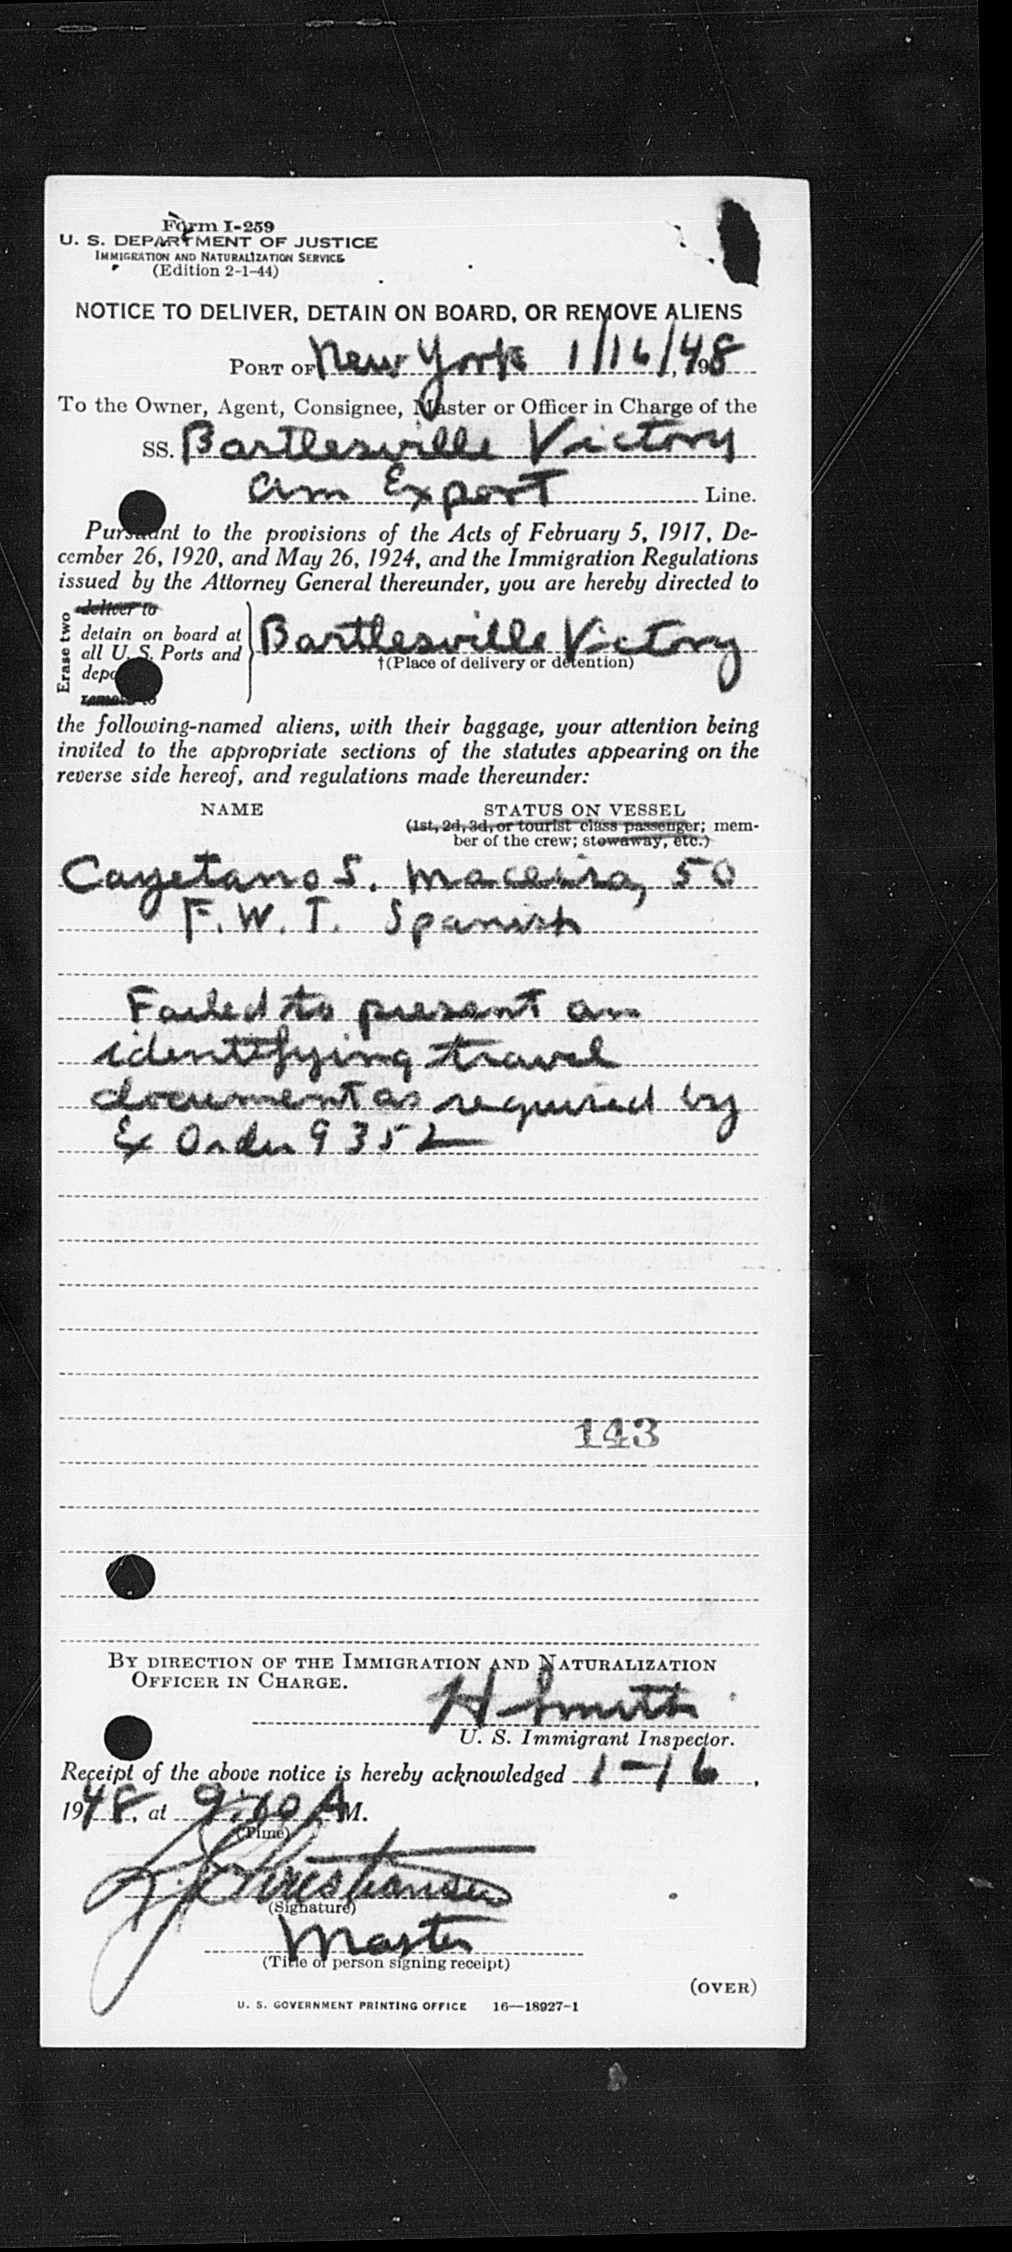 Form I-259
U. S. DEPARTMENT OF JUSTICE
IMMIGRATION AND NATURALIZATION SERVICE
(Edition 2-1-44)
NOTICE TO DELIVER, DETAIN ON BOARD, OR REMOVE ALIENS
PORT OF New York 1/16/48, 1948
To the Owner, Agent, Consignee, Master or Officer in Charge of the
SS. Bartlesville Victory
Am Export Line.
Pursuant to the provisions of the Acts of February 5, 1917, De-
cember 26, 1920, and May 26, 1924, and the Immigration Regulations
issued by the Attorney General thereunder, you are hereby directed to
Erase two
deliver to
detain on board at
all U. S. Ports and
remove to
Bartlesville Victory
†(Place of delivery or detention)
the following-named aliens, with their baggage, your attention being
invited to the appropriate sections of the statutes appearing on the
reverse side hereof, and regulations made thereunder:
NAME STATUS ON VESSEL
(1st, 2d, 3d, or tourist class passenger; mem-
ber of the crew; stowaway, etc.)
Cayetano S. Maceira, 50
F.W.T. Spanish
Failed to present an
identifying travel
document as required by
Ex Order 9352
143
BY DIRECTION OF THE IMMIGRATION AND NATURALIZATION
OFFICER IN CHARGE.
H Smith
U. S. Immigrant Inspector.
Receipt of the above notice is hereby acknowledged 1-16,
1948, at 9:10 A M.
(Time)
Christiansen
(Signature)
Master
(Title of person signing receipt)
(OVER)
U. S. GOVERNMENT PRINTING OFFICE 16—18927-1